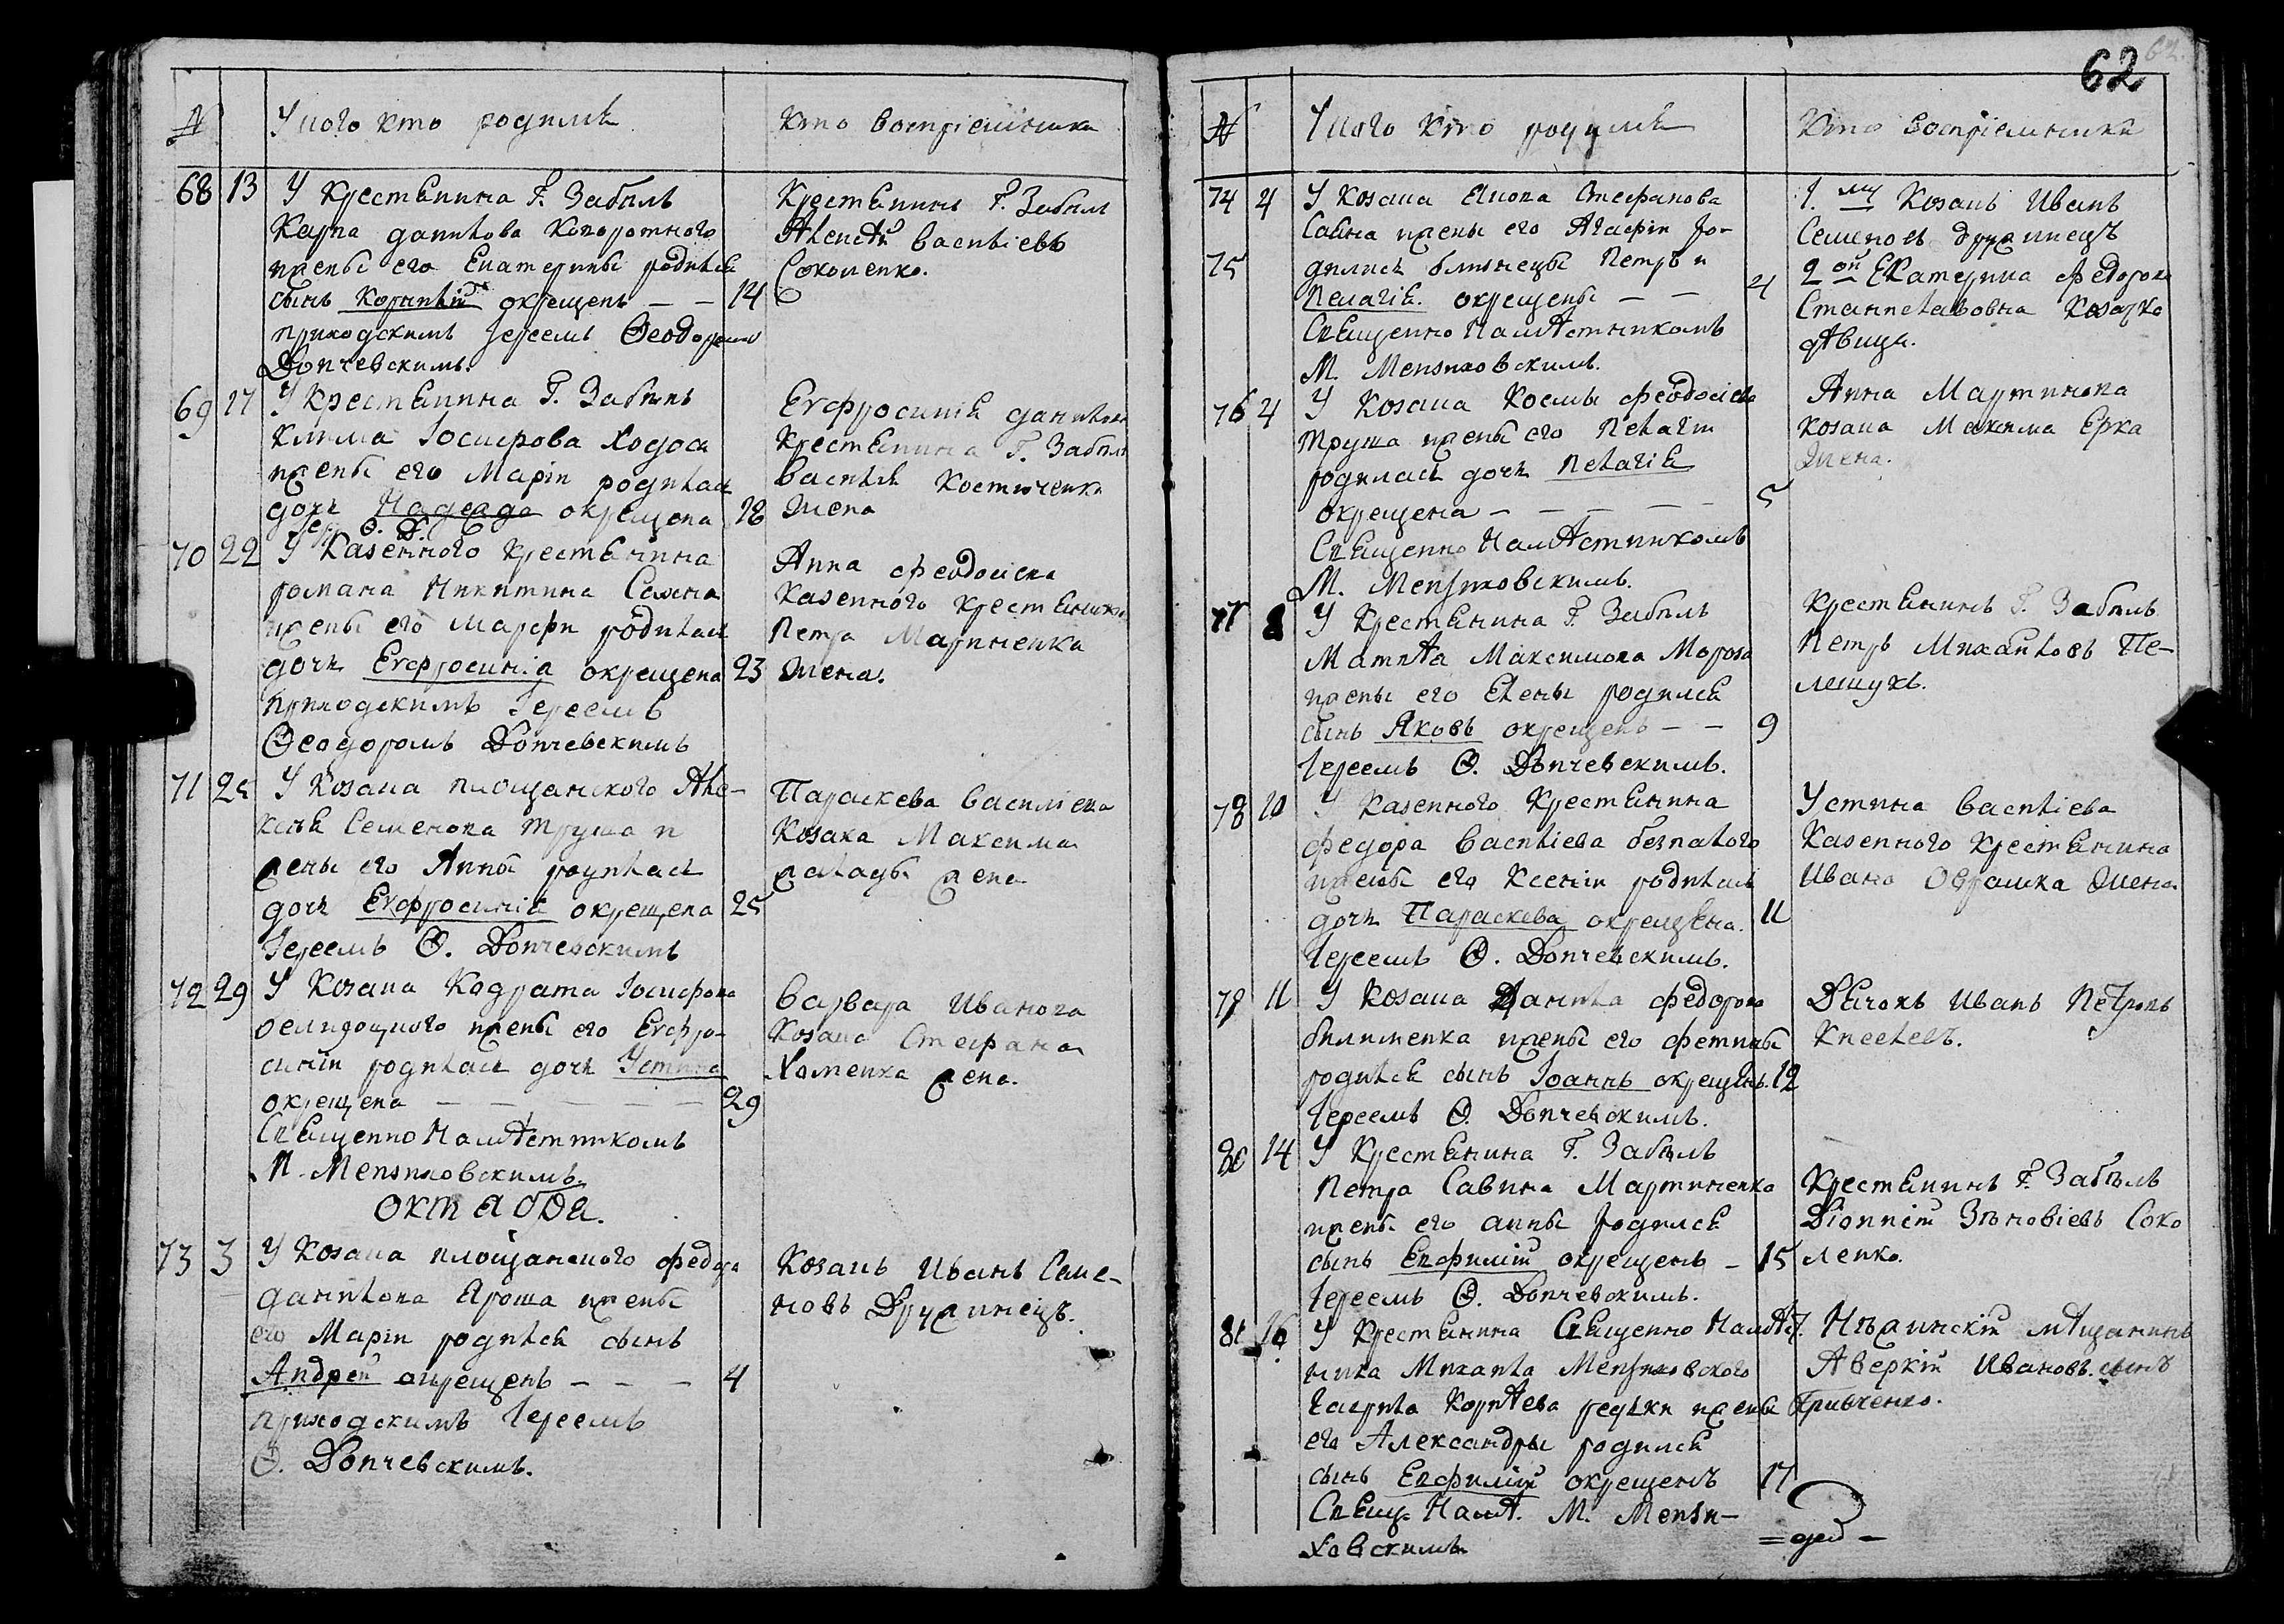 № У кого кто родился Кто воспріемники
68 13 У Крестянина Г. Забѣлы
Карпа Данилова Коноротного
жены его Екатерины родился
сынъ Корнилій окрещенъ — — 14
приходскимъ Іереемъ Ѳеодоромъ
Дончевскимъ.
Крестянинъ Г. Забѣлы
Алексѣй Василіевъ
Соколенко.
69 17 У Крестянина Г. Забѣлы
Клима Іосифова Ходоса
жены его Маріи родилась
дочь Надежда окрещена 18
Іер. Ѳ. Д.
Евфросинія Данилова
Крестянина Г. Забѣлы
Василія Костюченка
жена
70 22 У Казенного Крестянина
Романа Никитина Самка
жены его Марфи родилась
дочь Евфросинія окрещена 23
приходскимъ Іереемъ
Ѳеодоромъ Дончевскимъ
Анна Феодосіева
Казенного Крестянина
Петра Мариненка
жена.
71 25 У Козака площанского Але-
ксѣя Семенова Труша и
жены его Анны родилась
дочь Евфросинія окрещена 25
Іереемъ Ѳ. Дончевскимъ
Параскева Василіева
Козака Максима
Жалады жена
72 29 У Козака Кодрата Іосифова
жены его Евфро-
синіи родилась дочь Устина
окрещена — — — — — 29
Священно Намѣстникомъ
М. Мензиховскимъ.
Варвара Иванова
Козака Стефана
Хоменка жена.
октября.
73 3 У Козака площанского Федора
Данилова Яроша жены
его Маріи родился сынъ
Андрей окрещенъ — — — 4
приходскимъ Іереемъ
Ѳ. Дончевскимъ.
Козакъ Иванъ Семе-
новъ Дружинецъ.
62
№ У кого кто родился Кто воспріемники
74 4 У Козака Стефанова
жены его Агафіи ро-
75 дились близнецы Петръ и
Пелагія. окрещены — — 4
Священно Намѣстникомъ
М. Мензиховскимъ.
1.му Козакъ Иванъ
Семеновъ Дружинецъ
2ой Екатерина Федорова
Козачка
дѣвица.
76 4 У Козака Космы Феодосіева
Труша жены его Пелагіи
родилась дочь Пелагія
окрещена — — — — — 5
Священно Намѣстникомъ
М. Мензиховскимъ.
Анна Мартинова
Козака Максима Ерка
жена.
77 8 У Крестянина Г. Забѣлы
Матѣя Максимова Мороза
жены его Елены родился
сынъ Яковъ окрещенъ — — 9
Іереемъ Ѳ. Дончевскимъ.
Крестянинъ Г. Забѣлы
Петръ Михайловъ Пе-
лешухъ.
78 10 У Казенного Крестянина
Федора Василіева безпалого
жены его Ксеніи родилась
дочь Параскева окрещена. 11
Іереемъ Ѳ. Дончевскимъ.
Устина Василіева
Казенного Крестянина
Ивана Оврамка жена
79 11 У Козака Данила Федорова
билименка жены его Фетинны
родился сынъ Іоаннъ окрещенъ. 12
Іереемъ Ѳ. Дончевскимъ.
Дячокъ Иванъ Петровъ
Киселевъ.
80 14 У Крестянина Г. Забѣлы
Петра Савина Мартиненка
жены его анны родился
сынъ Евфимій окрещенъ — 15
Іереемъ Ѳ. Дончевскимъ.
Крестянинъ Г. Забѣлы
Діонисій Зѣновіевъ Соко
ленко.
81 16 У Крестянина Священно Намѣст.
ника Михаила Мензиховского
Гаврила Корнѣева редьки жены
его Александры родился
сынъ Евфимій окрещенъ 17
Свящ. Намѣ. М. Мензи-
ховскимъ
Нѣжинскій мѣщанинъ
Аверкій Ивановъ сынъ
Гривченко.